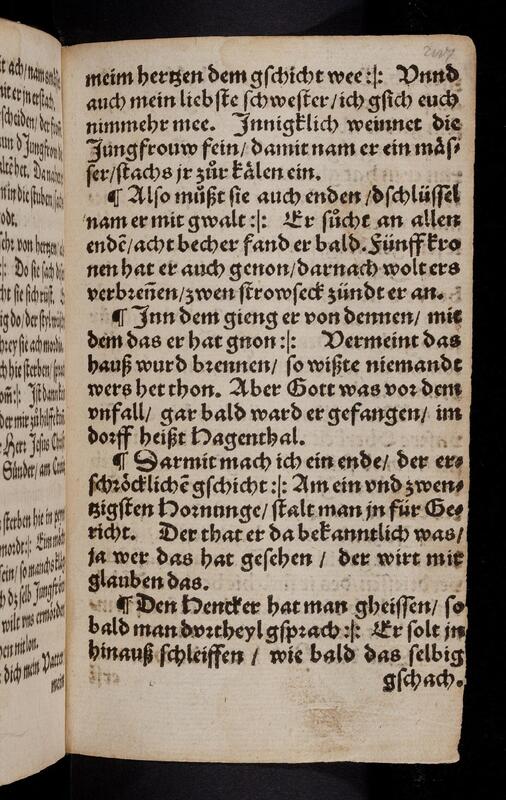 meim hertzen dem gschicht wee :|: Vnnd
auch mein liebste schwester / ich gsich euch
nimmehr mee. Innigklich weinnet die
Jungfrouw fein / damit nam er ein mäs-
ser / stachs jr zůr kälen ein.
¶ Also můßt sie auch enden / dschlüssel
nam er mit gwalt :|: Er sůcht an allen
endē / acht becher fand er bald. Fünff kro
nen hat er auch genon / darnach wolt ers
verbreñen / zwen strowseck zündt er an.
¶ Inn dem gieng er von dennen / mit
dem das er hat gnon :|: Vermeint das
hauß wurd brennen / so wißte niemandt
wers het thon. Aber Gott was vor dem
vnfall / gar bald ward er gefangen / im
dorff heißt Hagenthal.
¶ Darmit mach ich ein ende / der er-
schröcklichē gschicht :|: Am ein vnd zwen-
tzigsten Hornunge / stalt man jn für Ge-
richt. Der that er da bekanntlich was /
ja wer das hat gesehen / der wirt mir
glauben das.
¶ Den Hencker hat man gheissen / so
bald man dvrtheyl gsprach :|: Er solt jn
hinauß schleiffen / wie bald das selbig
gschach.